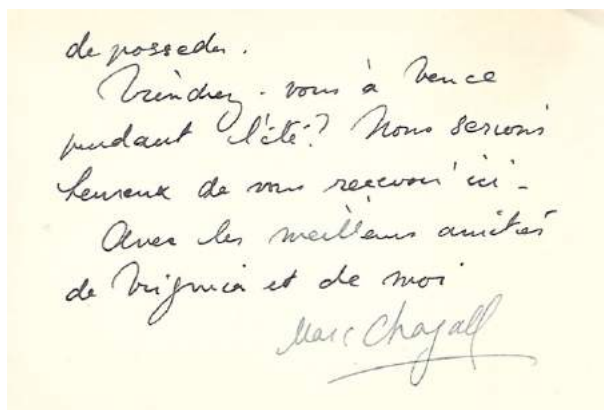 de posseder.
Viendrez-vous à Vence
pendant l'été? Nous serions
heureux de vous recevoir ici -
Avec les meilleurs amitiés
de Virginia et de moi
Marc Chagall